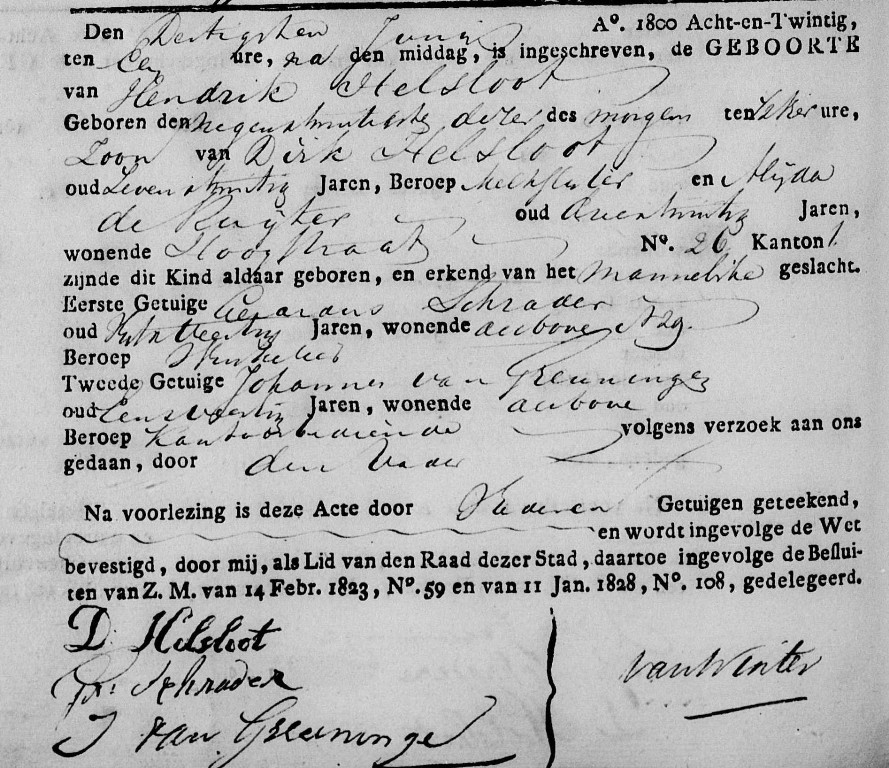 Den Dertigsten Junij A°. 1800 Acht-en-Twintig,
ten Een ure, na den middag, is ingeschreven, de GEBOORTE
van Hendrik Helsloot
Geboren den negenentwintigste dezer des morgens ten zeker ure,
Zoon van Dirk Helsloot
oud zevenentwintig Jaren, Beroep Melkslijter en Alyda
de Ruyter oud Jaren,
wonende Hoogstraat N°. 26 Kanton 1.
zijnde dit Kind aldaar geboren, en erkend van het mannelike geslacht.
Eerste Getuige Gerardus Schrader
oud Jaren, wonende als boven N 29.
Beroep Winkelier
Tweede Getuige Johannes van Greuninge
oud Eenenveertig Jaren, wonende als boven
Beroep Kantoorbediende volgens verzoek aan ons
gedaan, door den Vader
Na voorlezing is deze Acte door Vader en Getuigen geteekend,
en wordt ingevolge de Wet
bevestigd, door mij, als Lid van den Raad dezer Stad, daartoe ingevolge de Beslui-
ten van Z. M. van 14 Febr. 1823, N°. 59 en van 11 Jan. 1828, N°. 108, gedelegeerd.
D Helsloot
Schrader
J van Greuninge
van Winter